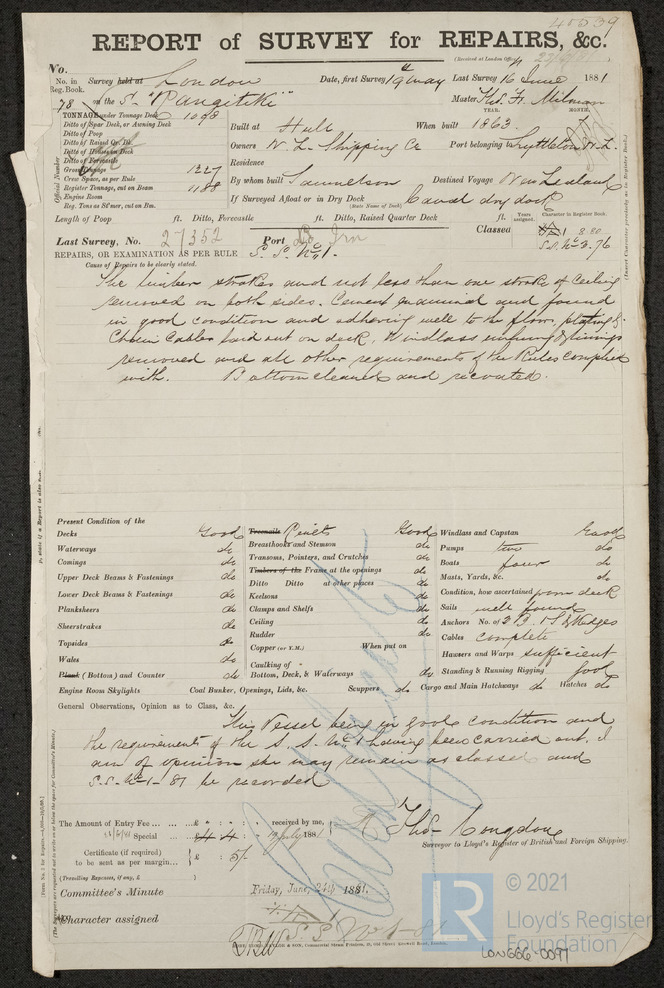 40539
REPORT of SURVEY for REPAIRS, &c.
(Received at London Office
No.
No. in Survey held at London Date, first Survey 19 May Last Survey 16 June 1881
Reg. Book.
78 on the S. "Rangitiki" Master Thos. H. Milman
TONNAGE under Tonnage Deck 1098
Ditto of Spar Deck, or Awning Deck
Ditto of Poop
Ditto of Raised Qr. Dk.
Ditto of Houses on Deck
Ditto of Forecastle
Gross Tonnage 1227
Crew Space, as per Rule
Register Tonnage, cut on Beam 1188
Engine Room
Reg. Tons as Sd'mer, cut on Bm.
Official Number
YEAR. MONTH.
Built at Hull When built 1863 7
Owners N. Z. Shipping Co Port belonging Lyttelton N.Z.
Residence
By whom built Samuelson Destined Voyage New Zealand
If Surveyed Afloat or in Dry Dock Canal dry dock
(State Name of Dock)
Length of Poop ft. Ditto, Forecastle ft. Ditto, Raised Quarter Deck ft.
Years assigned. Character in Register Book.
Classed A1 8 80
S.S. No 3. 76
Last Survey, No. 27352 Port Irn
REPAIRS, OR EXAMINATION AS PER RULE S. S. No 1.
Cause of Repairs to be clearly stated.
The limber strakes and not less than one strake of Ceiling
removed on both sides. Cement examined and found
in good condition and adhering well to the floors, plating &c
Chain Cables laid out on deck. Windlass
removed and all other requirements of the Rules complied
with. Bottom cleaned and recoated.
Present Condition of the
Decks Good
Waterways do
Comings do
Upper Deck Beams & Fastenings do
Lower Deck Beams & Fastenings do
Planksheers do
Sheerstrakes do
Topsides do
Wales do
Plank (Bottom) and Counter do
Engine Room Skylights
Treenails Rivets Good
Breasthooks and Stemson do
Transoms, Pointers, and Crutches do
Timbers of the Frame at the openings do
Ditto Ditto at other places do
Keelsons do
Clamps and Shelfs do
Ceiling do
Rudder do
Copper (or Y.M.) When put on
Caulking of
Bottom, Deck, & Waterways do
Coal Bunker, Openings, Lids, &c. Scuppers do Cargo and Main Hatchways do Hatches do
Windlass and Capstan Good
Pumps two do
Boats four do
Masts, Yards, &c. do
Condition, how ascertained from deck
Sails well found
Anchors No. of 3 B. 1 S. 2 Kedges
Cables Complete
Hawsers and Warps sufficient
Standing & Running Rigging Good
General Observations, Opinion as to Class, &c.
This Vessel being in good condition and
the requirements of the S. S. No 1 having been carried out, I
am of opinion she may remain as classed and
S.S. No 1 - 81 be recorded
The Amount of Entry Fee ... £ : : received by me,
Special ... £ 4 : 4 : July 1881
Certificate (if required) £ : 5/-
to be sent as per margin...
(Travelling Expenses, if any, £ )
Thos. Congdon
Surveyor to Lloyd's Register of British and Foreign Shipping.
Committee's Minute Friday, June, 24th 1881.
Character assigned
S S No 1 - 81
© 2021
Lloyd's Register
Foundation
LR
LON666-0097